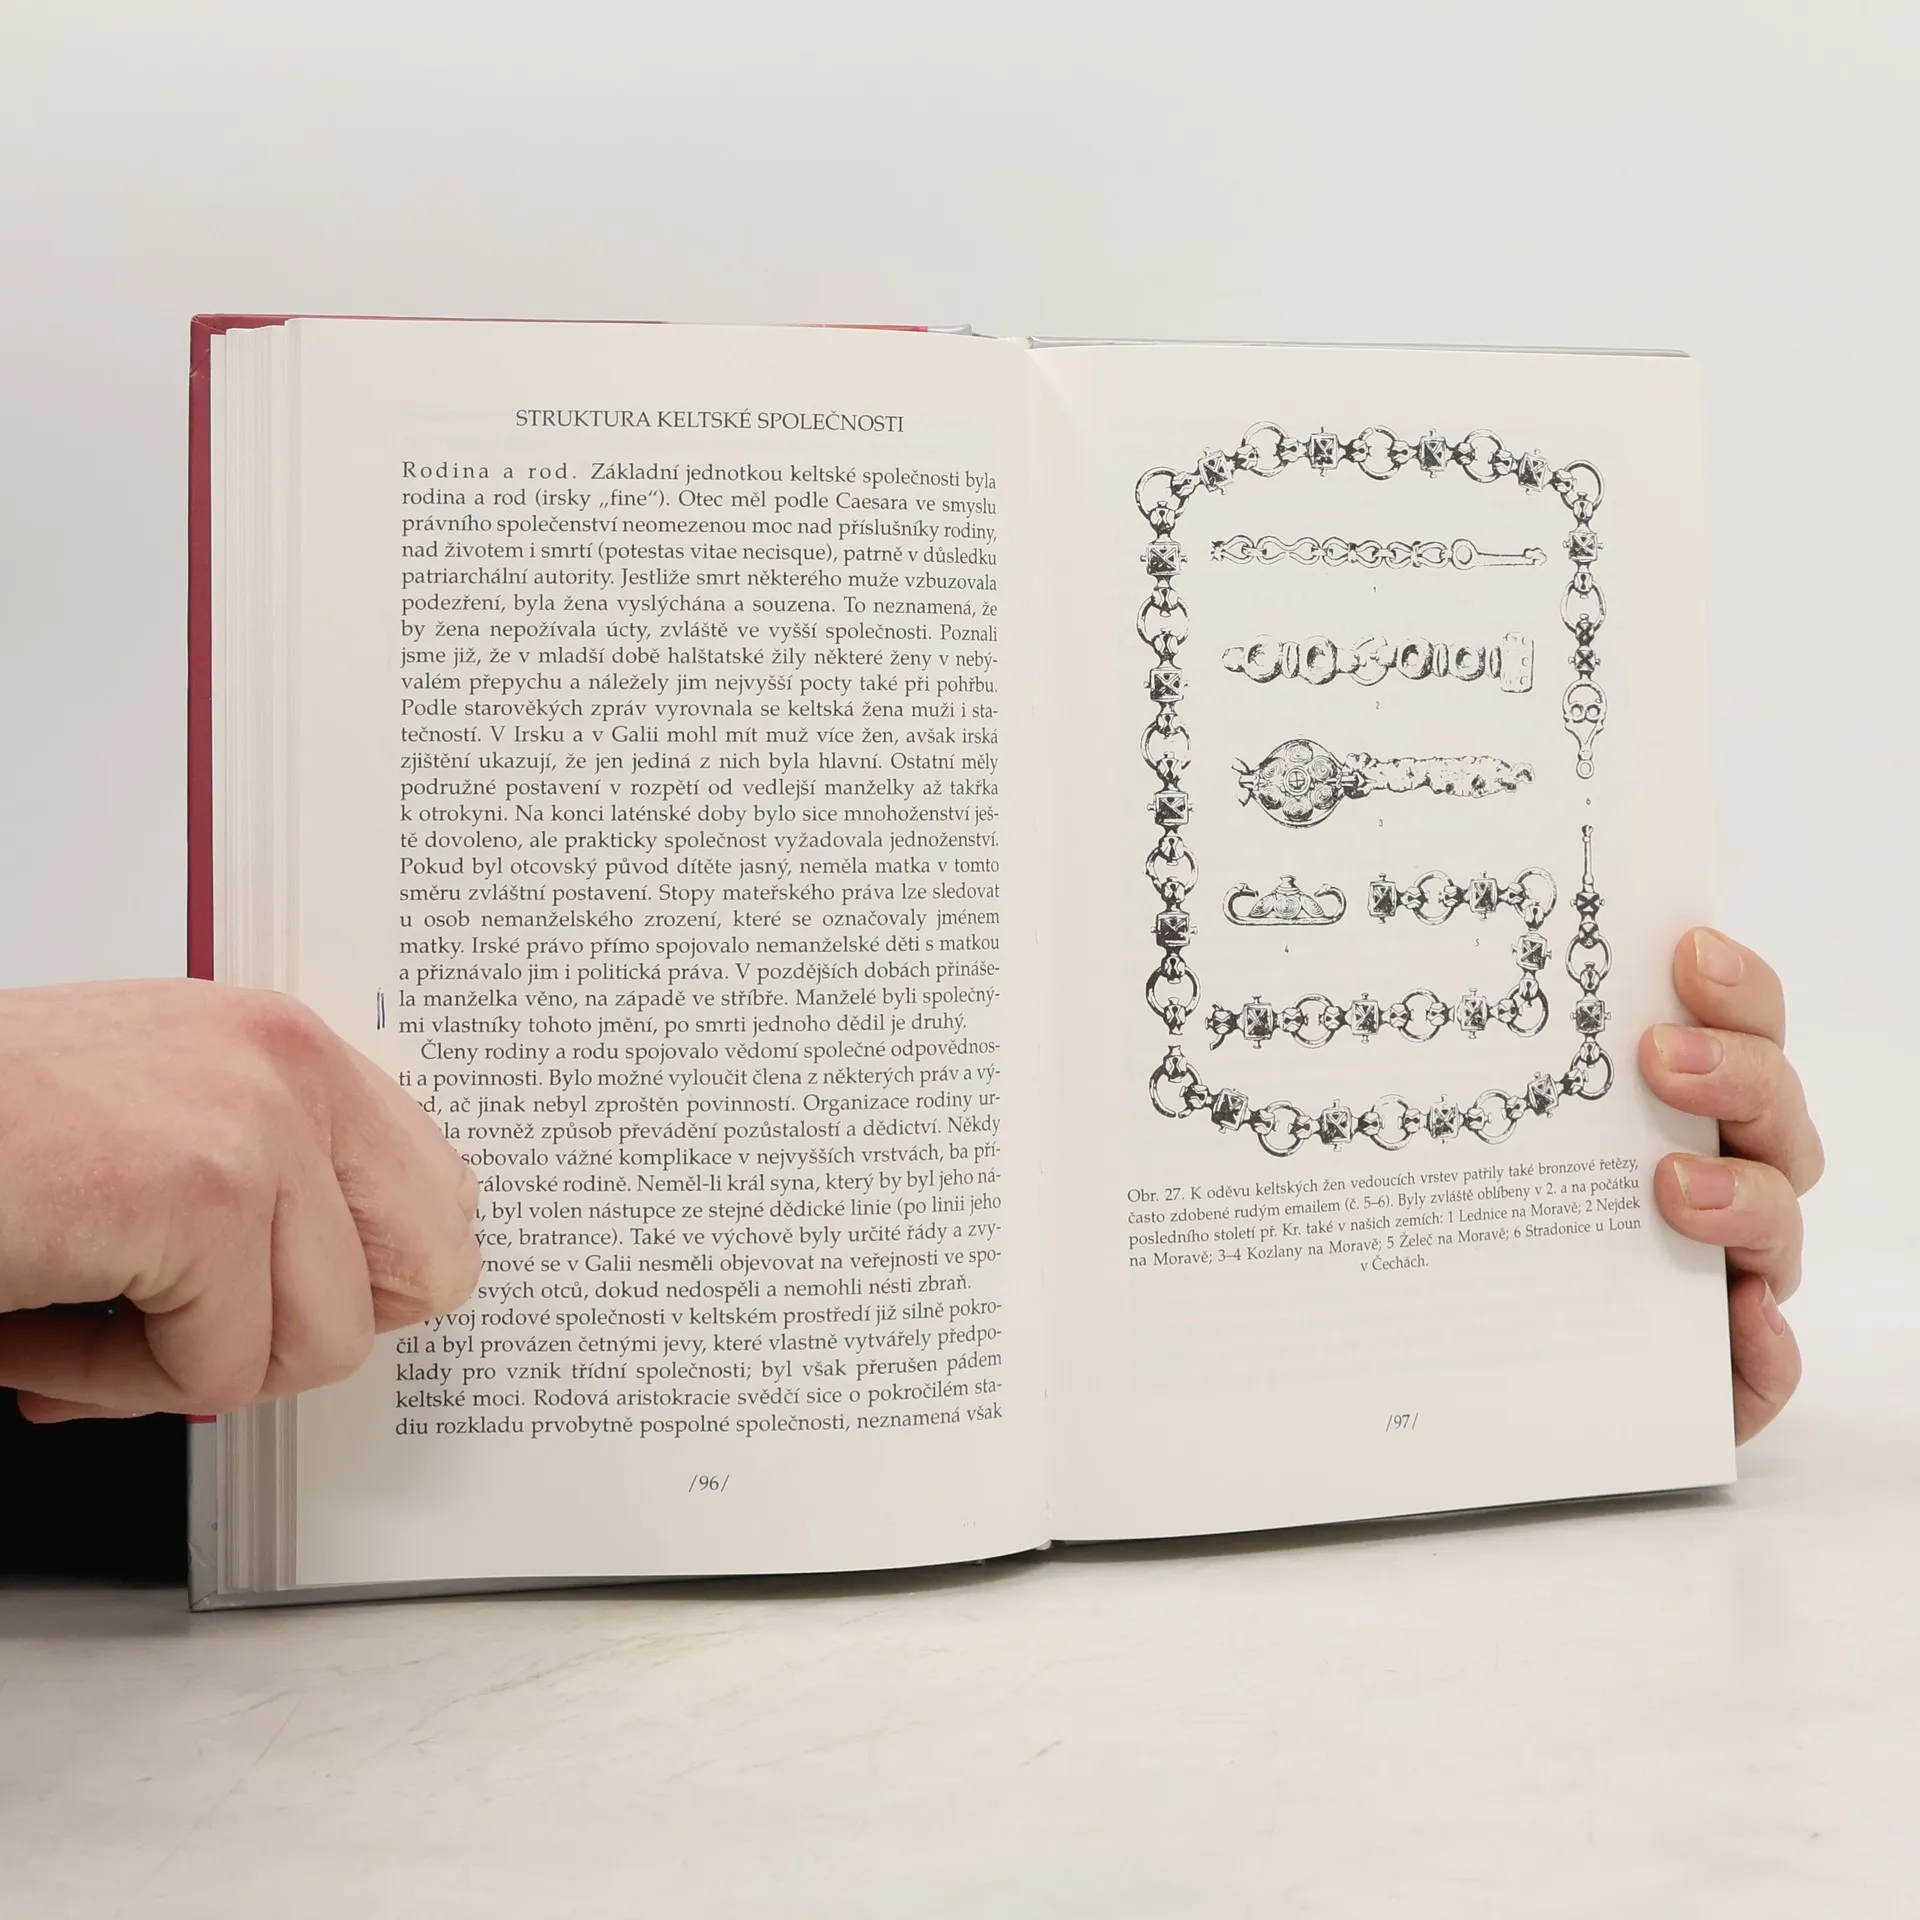 STRUKTURA KELTSKÉ SPOLEČNOSTI
Rodina a rod. Základní jednotkou keltské společnosti byla
rodina a rod (irsky „fine“). Otec měl podle Caesara ve smyslu
právního společenství neomezenou moc nad příslušníky rodiny,
nad životem i smrtí (potestas vitae necisque), patrně v důsledku
patriarchální autority. Jestliže smrt některého muže vzbuzovala
podezření, byla žena vyslýchána a souzena. To neznamená, že
by žena nepožívala úcty, zvláště ve vyšší společnosti. Poznali
jsme již, že v mladší době halštatské žily některé ženy v neby-
valém přepychu a náležely jim nejvyšší pocty také při pohřbu.
Podle starověkých zpráv vyrovnala se keltská žena muži i sta-
tečností. V Irsku a v Galii mohl mít muž více žen, avšak irská
zjištění ukazují, že jen jediná z nich byla hlavní. Ostatní měly
podružné postavení v rozpětí od vedlejší manželky až takřka
k otrokyni. Na konci laténské doby bylo sice mnohoženství ješ-
tě dovoleno, ale prakticky společnost vyžadovala jednoženství.
Pokud byl otcovský původ dítěte jasný, neměla matka v tomto
směru zvláštní postavení. Stopy mateřského práva lze sledovat
u osob nemanželského zrození, které se označovaly jménem
matky. Irské právo přímo spojovalo nemanželské děti s matkou
a přiznávalo jim i politická práva. V pozdějších dobách přináše-
la manželka věno, na západě ve stříbře. Manželé byli společný-
mi vlastníky tohoto jmění, po smrti jednoho dědil je druhý.
Členy rodiny a rodu spojovalo vědomí společné odpovědnos-
ti a povinnosti. Bylo možné vyloučit člena z některých práv a vý-
od, ač jinak nebyl zproštěn povinností. Organizace rodiny ur-
la rovněž způsob převádění pozůstalostí a dědictví. Někdy
sobovalo vážné komplikace v nejvyšších vrstvách, ba pří-
rálovské rodině. Neměl-li král syna, který by byl jeho ná-
, byl volen nástupce ze stejné dědické linie (po linii jeho
ýce, bratrance). Také ve výchově byly určité řády a zvy-
ynové se v Galii nesměli objevovat na veřejnosti ve spo-
svých otců, dokud nedospěli a nemohli nésti zbraň.
Vývoj rodové společnosti v keltském prostředí již silně pokro-
čil a byl provázen četnými jevy, které vlastně vytvářely předpo-
klady pro vznik třídní společnosti; byl však přerušen pádem
keltské moci. Rodová aristokracie svědčí sice o pokročilém sta-
diu rozkladu prvobytně pospolné společnosti, neznamená však
/96/
1
2
3
4
5
6
Obr. 27. K oděvu keltských žen vedoucích vrstev patřily také bronzové řetězy,
často zdobené rudým emailem (č. 5–6). Byly zvláště oblíbeny v 2. a na počátku
posledního století př. Kr. také v našich zemích: 1 Lednice na Moravě; 2 Nejdek
na Moravě; 3–4 Kozlany na Moravě; 5 Želeč na Moravě; 6 Stradonice u Loun
v Čechách.
/97/